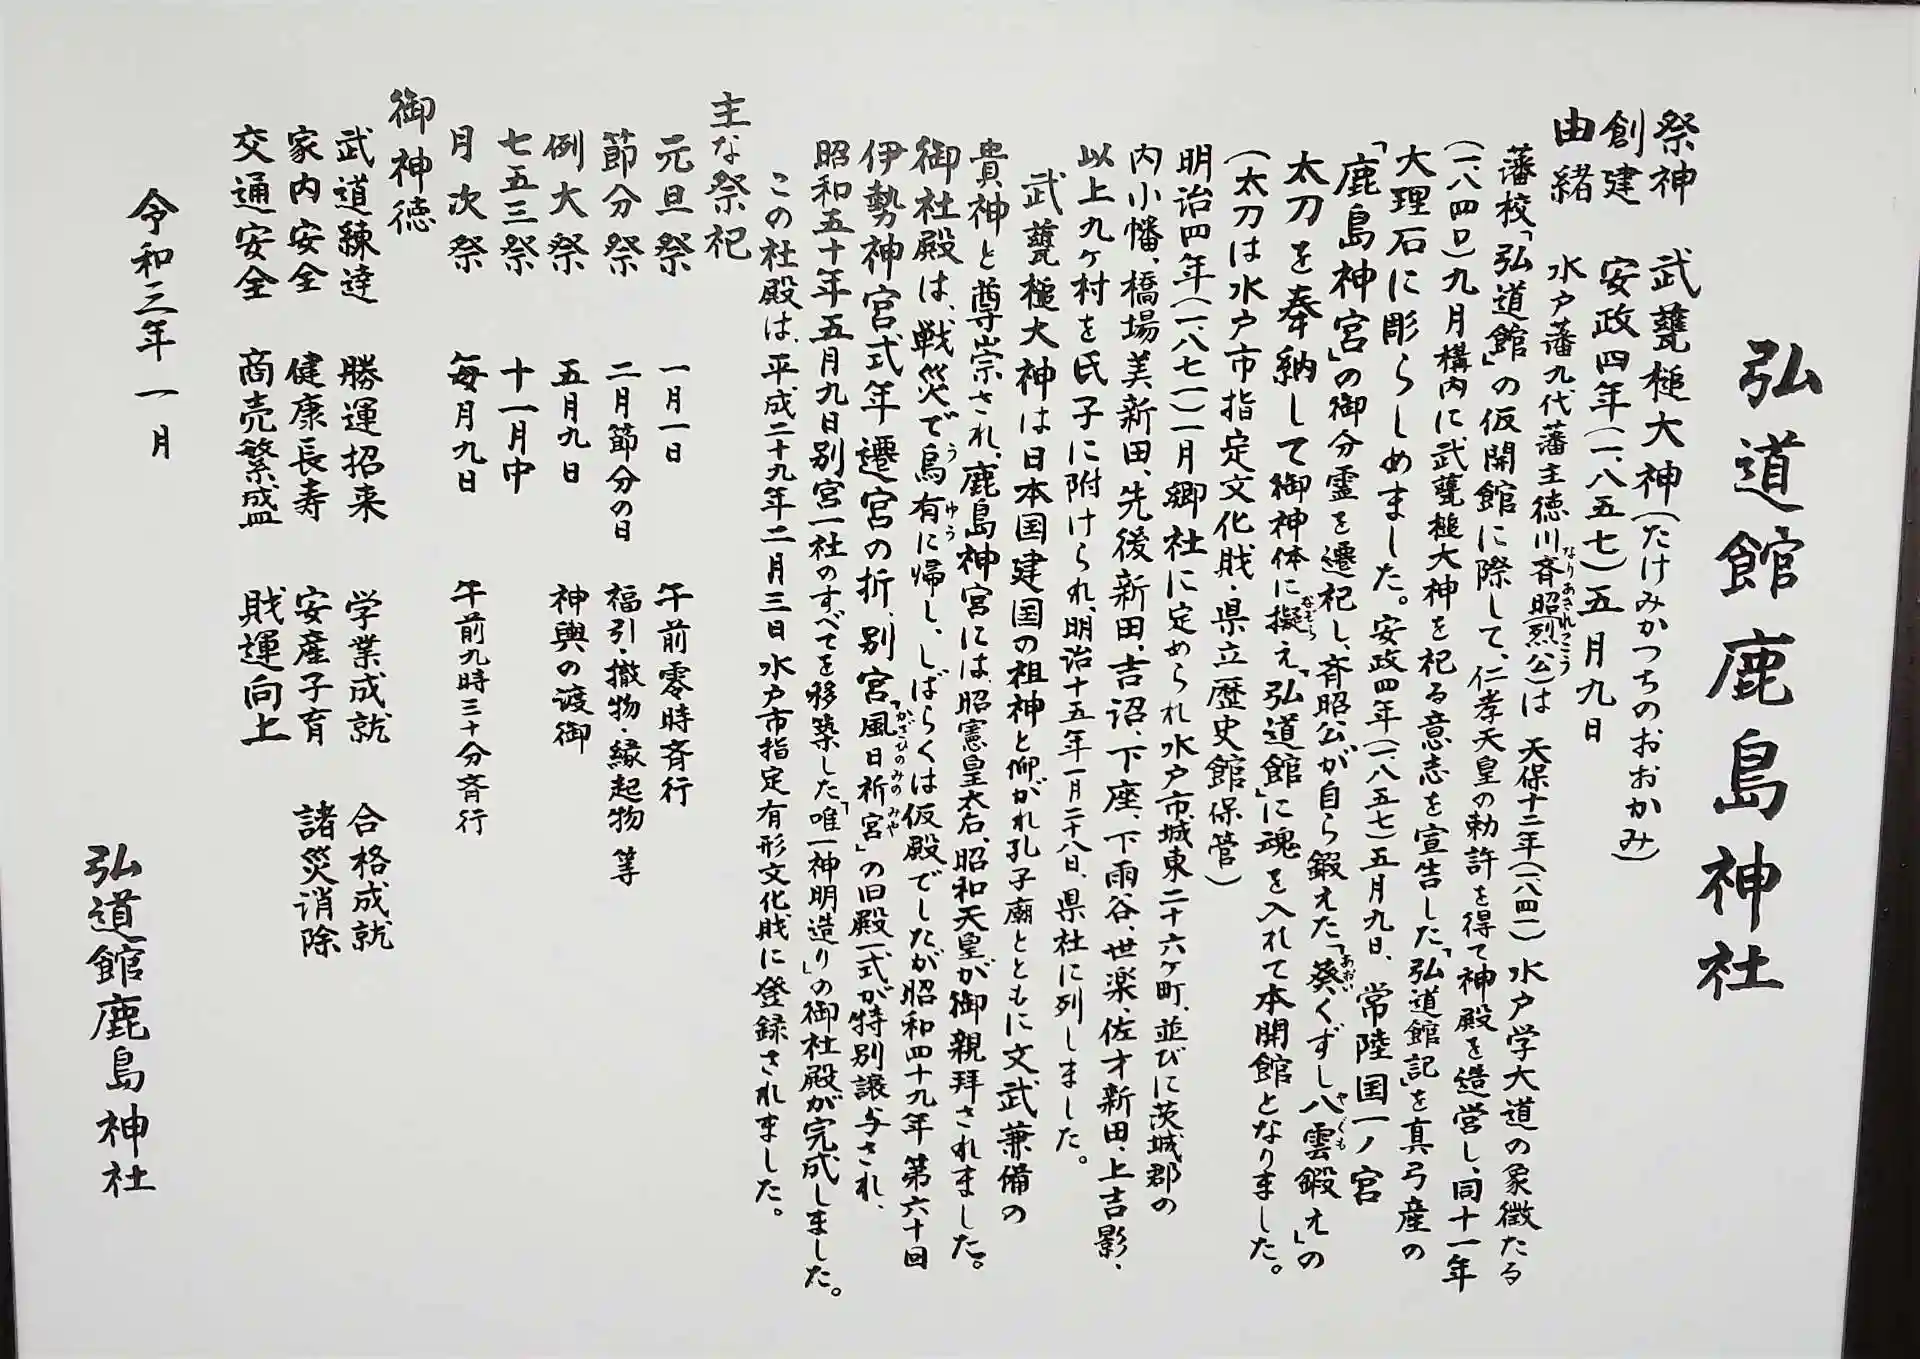 弘道館鹿島神社
祭神　武甕槌大神(たけみかつちのおおかみ)
創建　安政四年(一八五七)五月九日
由緒　水戸藩九代藩主徳川斉昭(烈公)は　天保十二年(一八四一)水戸学大道の象徴たる
なりあきれっこう
藩校「弘道館」の仮開館に際して、仁孝天皇の勅許を得て神殿を造営し、同十一年
(一八四〇)九月構内に武甕槌大神を祀る意志を宣告した「弘道館記」を真弓産の
大理石に彫らしめました。安政四年(一八五七)五月九日、常陸国一ノ宮
「鹿島神宮」の御分霊を遷祀し、斉昭公が自ら鍛えた「葵くずし八雲鍛え」の
あおい
やくも
太刀を奉納して御神体に擬え「弘道館」に魂を入れて本開館となりました。
なぞら
(太刀は水戸市指定文化財・県立歴史館保管)
明治四年(一八七一)一月郷社に定められ水戸市城東二十六ヶ町、並びに茨城郡の
内小幡、橋場美、新田、先後新田、吉沼、下座、下雨谷、世楽、佐才新田、上吉影、
以上九ヶ村を氏子に附けられ、明治十五年一月二十八日、県社に列しました。
武甕槌大神は日本国建国の祖神と仰がれ孔子廟とともに文武兼備の
貴神と尊崇され、鹿島神宮には、昭憲皇太后、昭和天皇が御親拝されました。
御社殿は、戦災で烏有に帰し、しばらくは仮殿でしたが昭和四十九年第六十回
うゆう
伊勢神宮式年遷宮の折、別宮「風日祈宮」の旧殿一式が特別譲与され、
かざひのみのみや
昭和五十年五月九日別宮一社のすべてを移築した「唯一神明造り」の御社殿が完成しました。
この社殿は、平成二十九年二月三日水戸市指定有形文化財に登録されました。
主な祭祀
元旦祭　一月一日　午前零時斉行
節分祭　二月節分の日　福引・撒物・縁起物　等
例大祭　五月九日　神輿の渡御
七五三祭　十一月中
月次祭　毎月九日　午前九時三十分斉行
御神徳
武道練達　勝運招来　学業成就　合格成就
家内安全　健康長寿　安産子育　諸災消除
交通安全　商売繁盛　財運向上
令和三年一月
弘道館鹿島神社